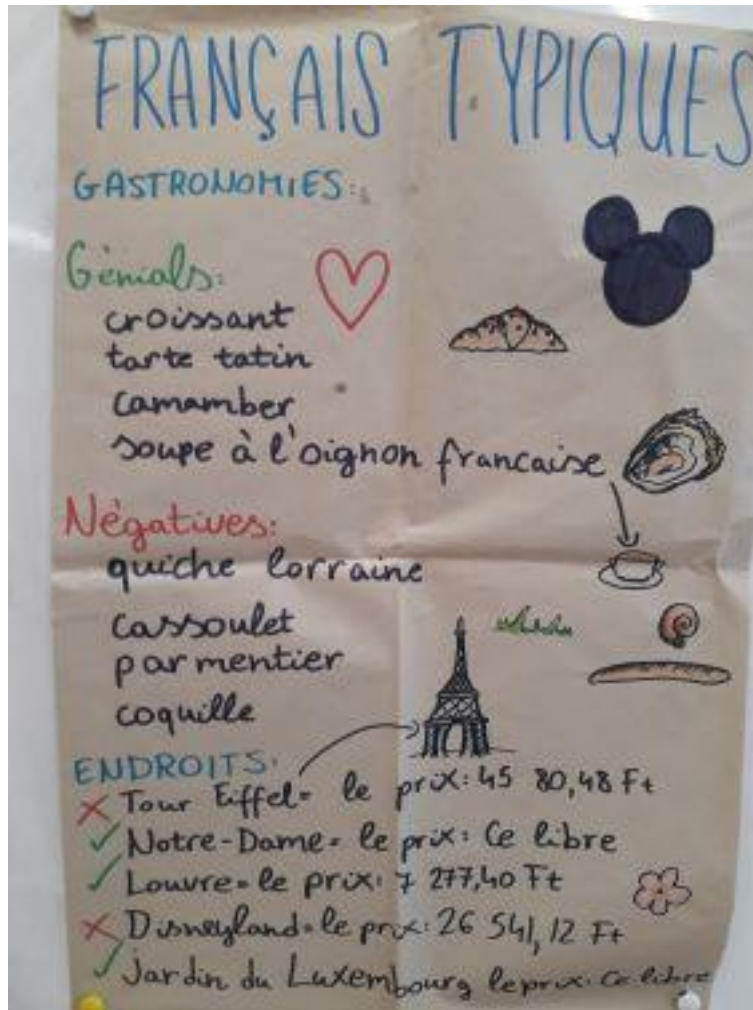 FRANÇAIS TYPIQUES
GASTRONOMIES:
Génials:
croissant
tarte tatin
camamber
soupe à l'oignon francaise
Négatives:
quiche lorraine
cassoulet
parmentier
coquille
ENDROITS:
Tour Eiffel= le prix: 45 80,48 Ft
Notre-Dame= le prix: Ce libre
Louvre= le prix: 7 277,40 Ft
Disneyland= le prix: 26 541,12 Ft
Jardin du Luxembourg le prix: Ce libre